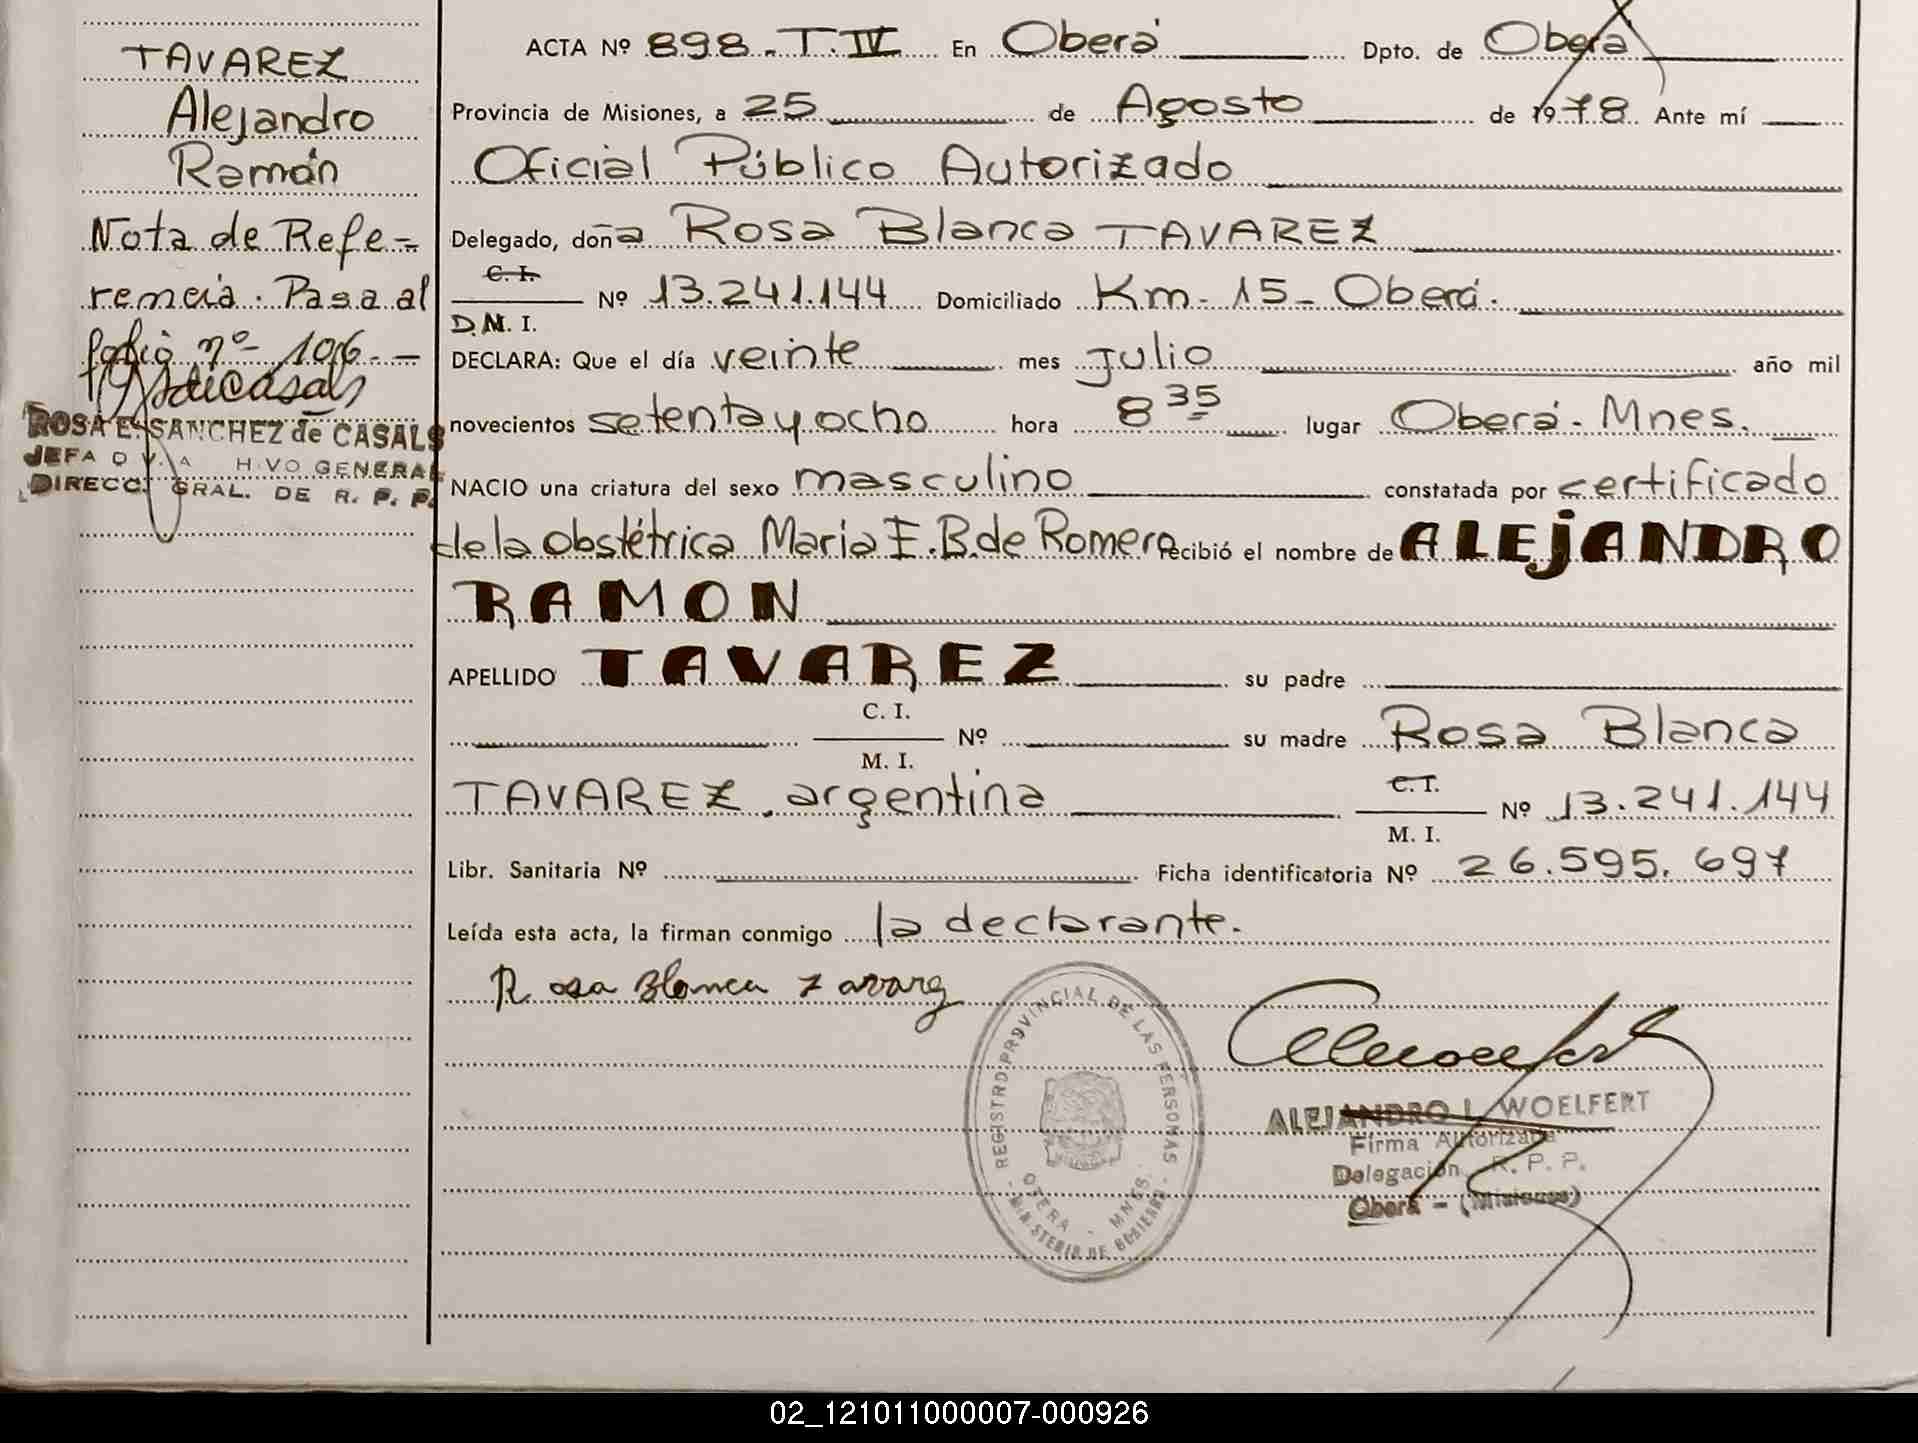 TAVAREZ
Alejandro
Ramón
Nota de Refe-
rencia. Pasa al
folio nº 106.-
ROSA E. SANCHEZ de CASALS
JEFA DIV. HIVO GENERAL
DIRECC. GRAL. DE R. P. P.
ACTA Nº 898.T.IV En Oberá Dpto. de Oberá
Provincia de Misiones, a 25 de Agosto de 1978. Ante mí
Oficial Público Autorizado
Delegado, doña Rosa Blanca TAVAREZ
C. I.
Nº 13.241.144 Domiciliado Km-15-Oberá.
D.N. I.
DECLARA: Que el día veinte mes Julio año mil
novecientos setenta y ocho hora 8 35 lugar Oberá-Mnes.
NACIO una criatura del sexo masculino constatada por certificado
de la obstétrica Maria E.B.de Romero recibió el nombre de ALEJANDRO
RAMON
APELLIDO TAVAREZ su padre
C. I.
Nº su madre Rosa Blanca
M. I.
TAVAREZ, argentina C. I. Nº 13.241.144
M. I.
Libr. Sanitaria Nº Ficha identificatoria Nº 26.595.697
Leída esta acta, la firman conmigo la declarante.
Rosa Blanca Tavarez
REGISTRO PROVINCIAL DE LAS PERSONAS
OBERA - MNES.
MINISTERIO DE GOBIERNO
ALEJANDRO L. WOELFERT
Firma Autorizada
Delegación R. P. P.
Oberá - (Misiones)
02_121011000007-000926